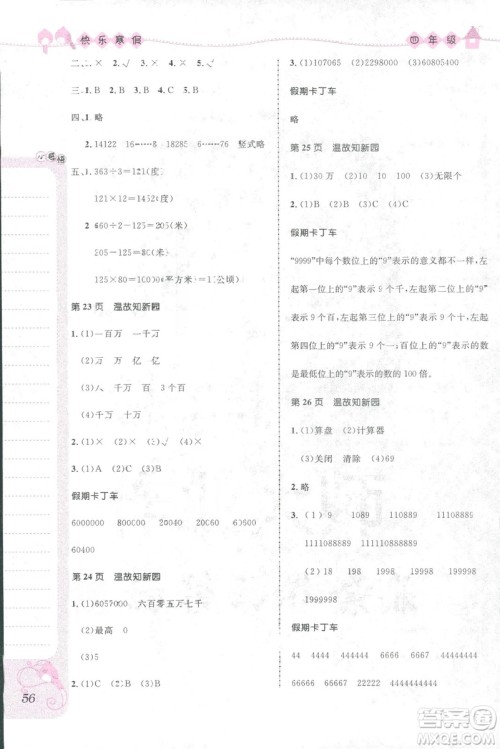 快乐寒假
四年级
二、二、× ×
三、1. B 2. B 3. B
四、1. 略
2. 14122 18285 竖式略
五、1. 363÷3=121(度)
121×12=1452(度)
2. 660÷2-125=205(米)
205-125=80(米)
125×80=10000(平方米)
第 23 页 温故知新园
1. (1)一百万 一千万
(2)八 千万 百万 万
(4)四千万 3
2. (1)√ (2)× (3)×
3. (1)A (2)C (3)D
假期卡丁车
6000000 200040 200400 204000
60400
第 24 页 温故知新园
1. (1)6057000 六百零五万七千
(2)最高 0
(3)5
2. (1)C (2)B (3)B
感悟
56
3. (1)107065 (2)22222 (3)60805400
假期卡丁车
略
第 25 页 温故知新园
1. (1)30万 (2)10 10 (3)无限个
2. (1)B (2)A (3)C (4)C
假期卡丁车
“9999”中每个数位上的“9”表示的意义都不一样,左
起第一位上的“9”表示 9 个千,左起第二位上的“9”
表示 9 个百,左起第三位上的“9”表示 9 个十,左起
第四位上的“9”表示 9 个一。左起第二位上的“9”表
示的数是左起第四位上的“9”表示的数的 100 倍。
第 26 页 温故知新园
1. (1)算盘 (2)计算器
(3)关闭 清除 (4)69
2. 略
3. (1) 9 1089 110889 11108889
1111088889 111110888889
(2) 18 198 1998 19998 199998
1999998
假期卡丁车
(1)42 4422 444222 44442222
(2)6 66 666 6666 66666 666666